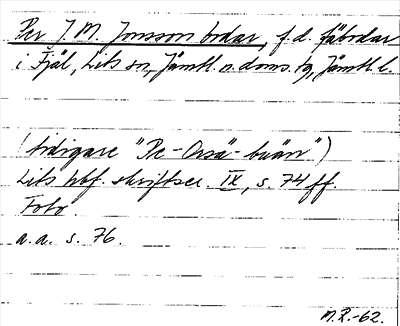 Per J. M. Jonsson bodar, f.d. fäbodar
i Fjäl, Lits sn, Jämtl. n. doms. tg, Jämtl. l.
(tidigare "Pe-Orsä-buan")
Lits hbf. skriftser. IX, s. 74 ff.
Foto.
a.a. s. 76.
M.R.-62.